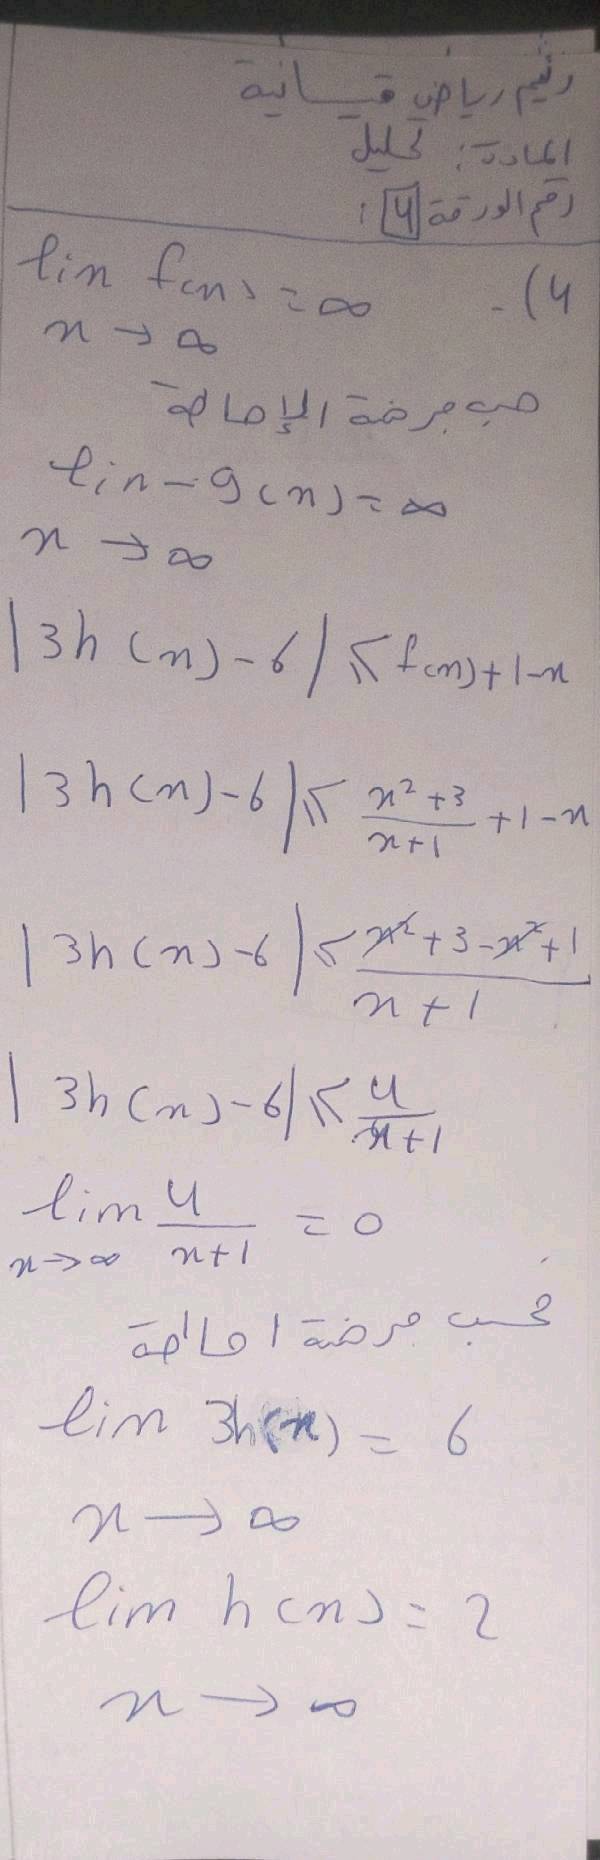 رقيم رياض قيسانية
المادة: تحليل
رقم الورقة 4 :
4) - lim f(x) = ∞
x → ∞
حسب مبرهنة الإحاطة
lim - g(x) = ∞
x → ∞
|3h(x) - 6| ≤ f(x) + 1 - x
|3h(x) - 6| ≤ \frac{x² + 3}{x + 1} + 1 - x
|3h(x) - 6| ≤ \frac{x² + 3 - x² + 1}{x + 1}
|3h(x) - 6| ≤ \frac{4}{x + 1}
lim \frac{4}{x + 1} = 0
x → ∞
فحسب مبرهنة احاطة
lim 3h(x) = 6
x → ∞
lim h(x) = 2
x → ∞